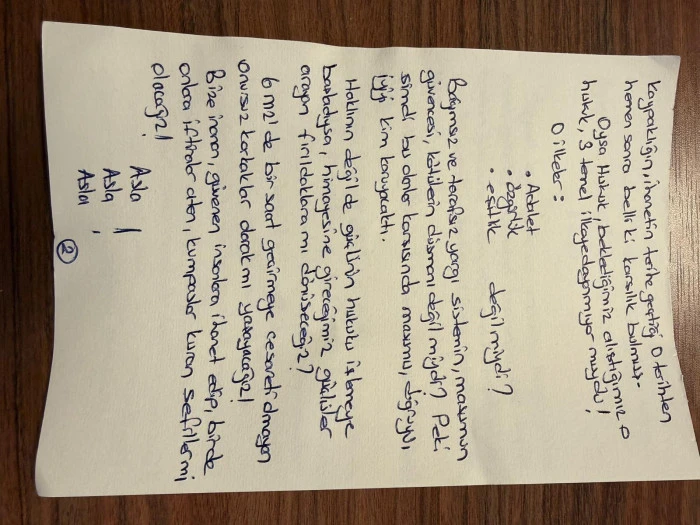 Kaypaklığın, ihanetin tarihe geçtiği O tarihten
hemen sonra belli ki karşılık bulmuş.
Oysa Hukuk, beklediğimiz alıştığımız o
hukuk, 3 temel ilkeye dayanmıyor muydu!
O ilkeler:
• Adalet
• özgürlük değil miydi?
• eşitlik
Bağımsız ve tarafsız yargı sistemin, masumun
güvencesi, kötülerin düşmanı değil miydi? Peki
şimdi bu devler karşısında masumu, doğruyu,
iyiyi kim koruyacaktı.
Haklının değil de güçlünün hukuku işlemeye
başladıysa, himayesine gireceğimiz güçlüler
arayan fırıldaklara mı dönüşeceğiz?
6 m2' de bir saat geçirmeye cesareti olmayan
onursuz korkaklar olarak mı yaşayacağız!
Bize inanan, güvenen insanlara ihanet edip, birde
onlara iftiralar atan, kumpaslar kuran sefiller mi
olacağız!
Asla !
Asla !
Asla
2